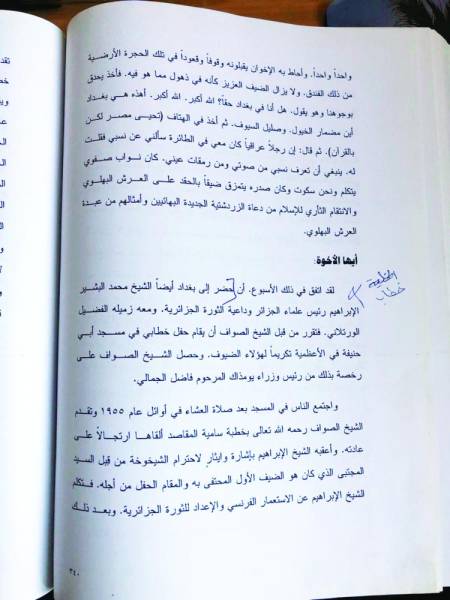 واحداً واحداً. وأحاط به الإخوان يقبلونه وقوفاً وقعوداً في تلك الحجرة الأرضية
من ذلك الفندق. ولا يزال الضيف العزيز كأنه في ذهول مما هو فيه. فأخذ يحدق
بوجوهنا وهو يقول. هل أنا في بغداد حقاً؟ الله أكبر. الله أكبر. أهذه هي بغداد
أين مضمار الخيول. وصليل السيوف. ثم أخذ في الهتاف (تحيى مصر لكن
بالقرآن). ثم قال: إن رجلاً عراقياً كان معي في الطائرة سألني عن نسبي فقلت
له. ينبغي أن تعرف نسبي من صوتي ومن رمقات عيني. كان نواب صفوي
يتكلم ونحن سكوت وكان صدره يتمزق ضيقاً بالحقد على العرش البهلوي
والانتقام الثأري للإسلام من دعاة الزردشتية الجديدة البهائيين وأمثالهم من عبدة
العرش البهلوي.
أيها الأخوة:
لقد اتفق في ذلك الأسبوع. أن حضر إلى بغداد أيضاً الشيخ محمد البشير
الإبراهيم رئيس علماء الجزائر وداعية الثورة الجزائرية. ومعه زميله الفضيل
الورتلاني. فتقرر من قبل الشيخ الصواف أن يقام حفل خطابي في مسجد أبي
حنيفة في الأعظمية تكريماً لهؤلاء الضيوف. وحصل الشيخ الصواف على
رخصة بذلك من رئيس وزراء يومذاك المرحوم فاضل الجمالي.
واجتمع الناس في المسجد بعد صلاة العشاء في أوائل عام ١٩٥٥ وتقدم
الشيخ الصواف رحمه الله تعالى بخطبة سامية المقاصد ألقاها ارتجالاً على
عادته. وأعقبه الشيخ الإبراهيم بإشارة وايثار لاحترام الشيخوخة من قبل السيد
المجتبى الذي كان هو الضيف الأول المحتفى به والمقام الحفل من أجله. فتكلم
الشيخ الإبراهيم عن الاستعمار الفرنسي والإعداد للثورة الجزائرية. وبعد ذلك
٢٤٠
خطاب